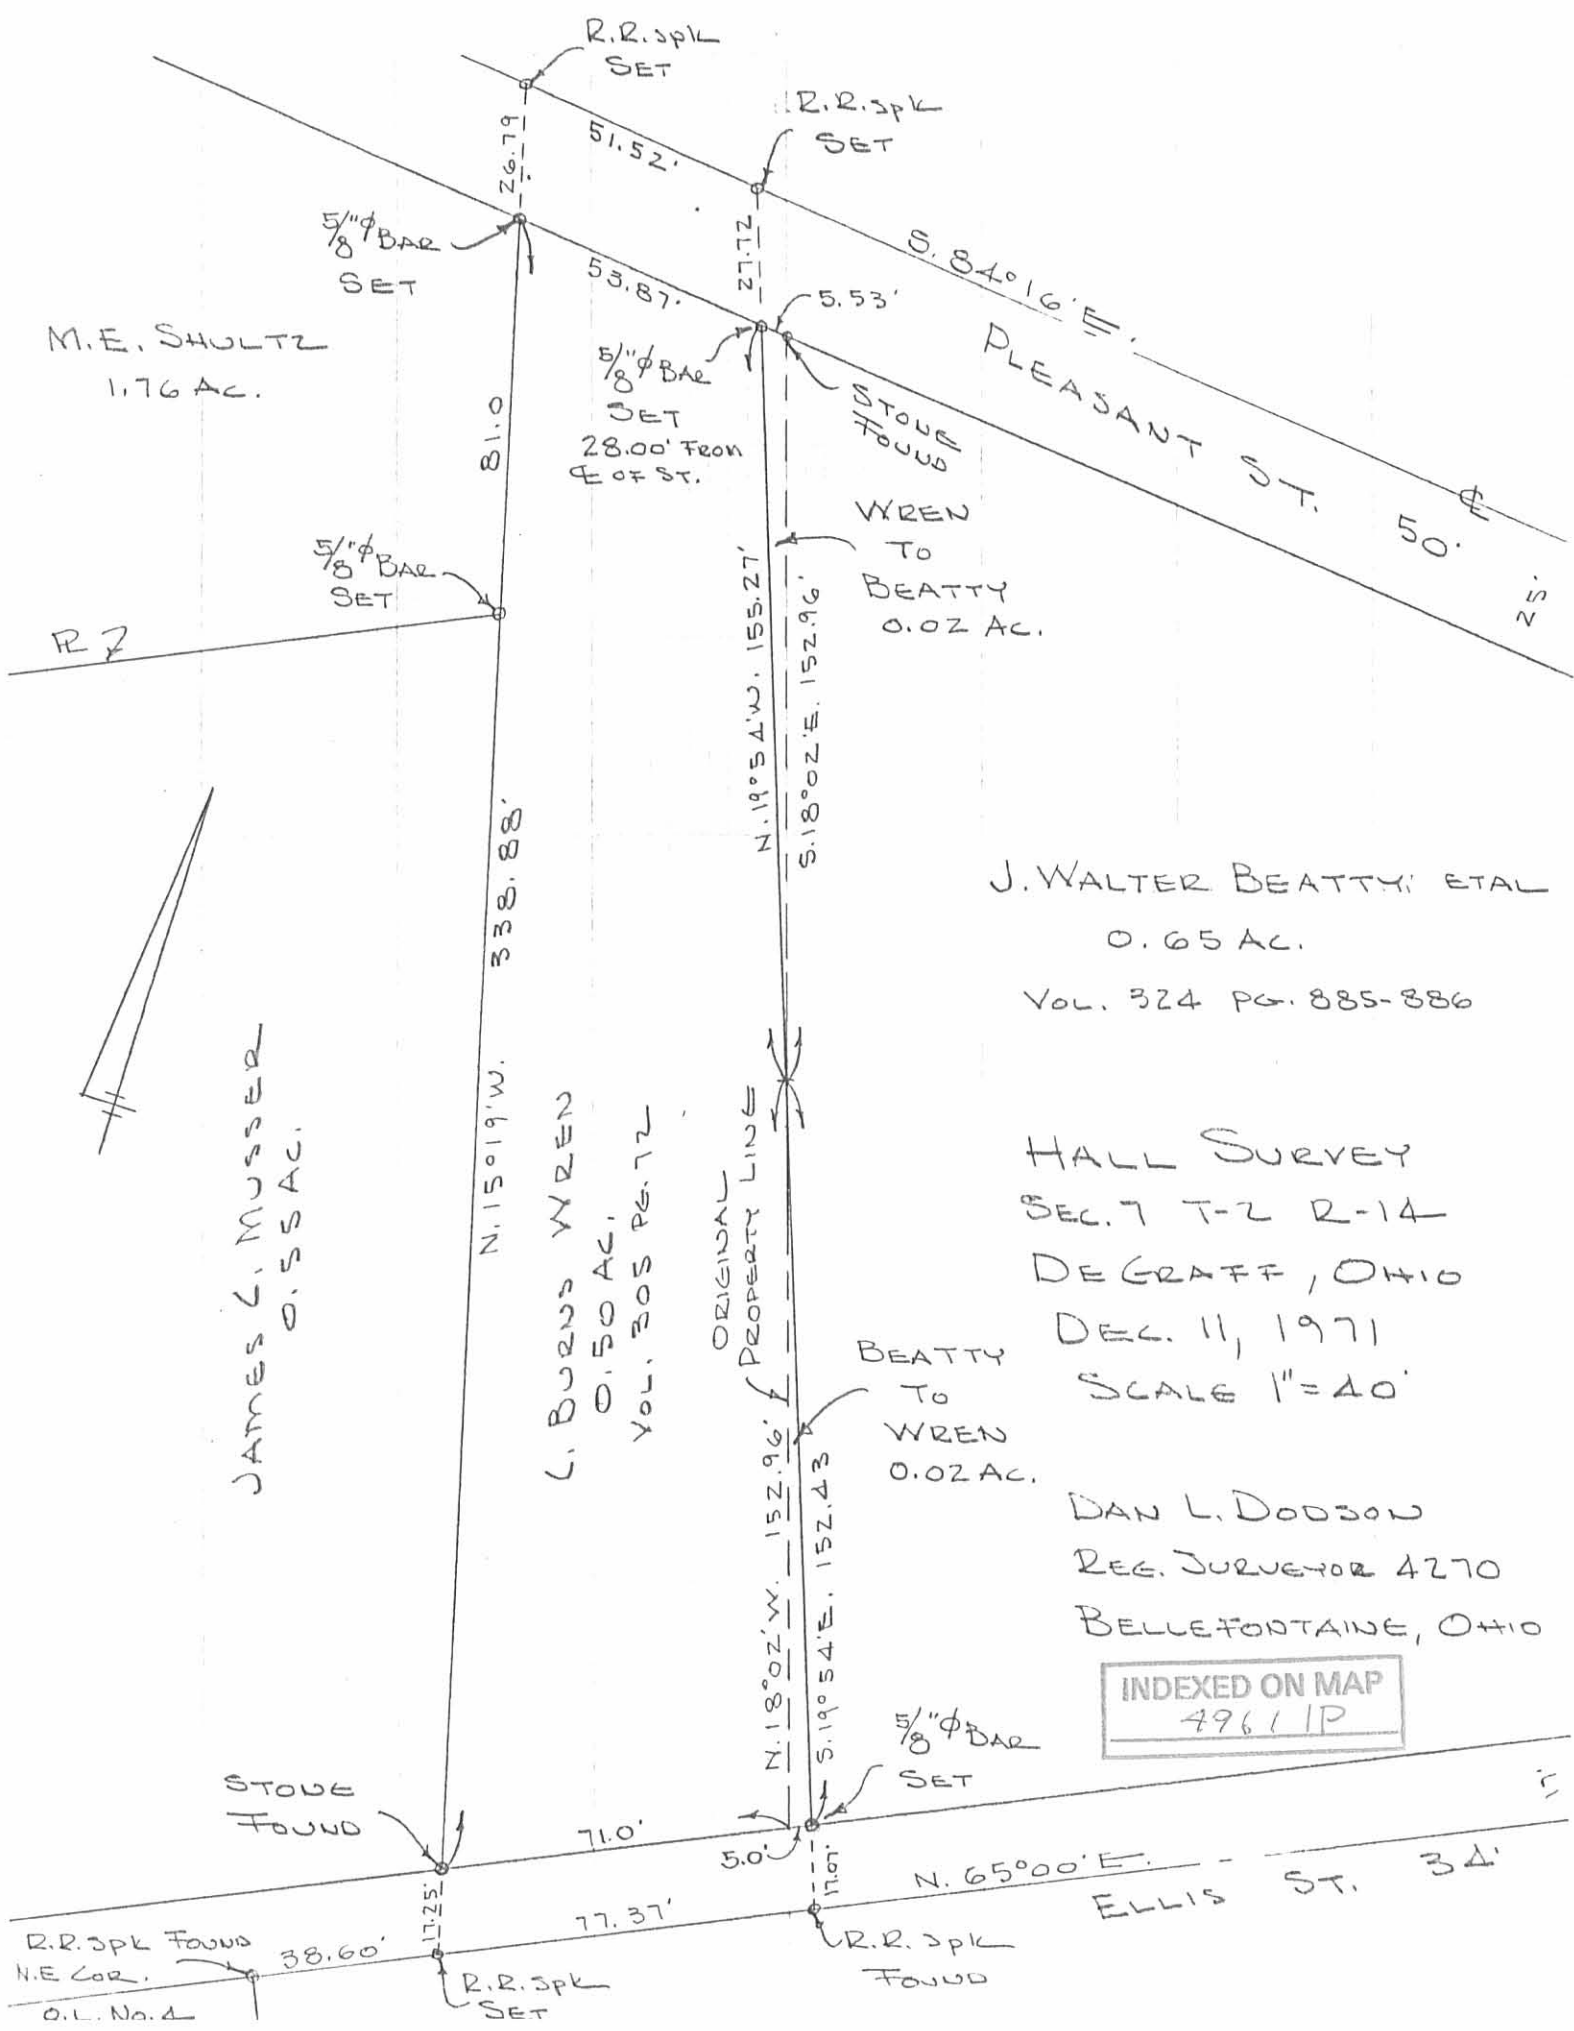 R.R. Spk
SET
R.R. Spk
SET
26.79
51.52'
27.72
5/8"⌀ BAR
SET
53.87'
5.53'
S. 84°16' E.
PLEASANT ST. 50'
℄
25'
M.E. SHULTZ
1.76 AC.
5/8"⌀ BAR
SET
28.00' FROM
℄ OF ST.
STONE
FOUND
81.0
WREN
TO
BEATTY
0.02 AC.
5/8"⌀ BAR
SET
N. 19°54' W. 155.27'
S. 18°02' E. 152.96'
N. 15°19' W. 338.88'
J. WALTER BEATTY; ETAL
0.65 AC.
VOL. 324 PG. 885-886
JAMES L. MUSSER
0.55 AC.
L. BURNS WREN
0.50 AC.
VOL. 305 PG. 72
ORIGINAL
PROPERTY LINE
HALL SURVEY
SEC. 7 T-2 R-14
DE GRAFF, OHIO
DEC. 11, 1971
SCALE 1"=40'
BEATTY
TO
WREN
0.02 AC.
N. 18°02' W. 152.96'
S. 19°54' E. 152.43
DAN L. DODSON
REG. SURVEYOR 4270
BELLEFONTAINE, OHIO
INDEXED ON MAP
4961 IP
5/8"⌀ BAR
SET
STONE
FOUND
71.0'
5.0'
17.25'
17.07'
N. 65°00' E.
ELLIS ST. 34'
77.37'
R.R. Spk FOUND
N.E COR.
O.L. No. 4
38.60'
R.R. Spk
SET
R.R. Spk
FOUND